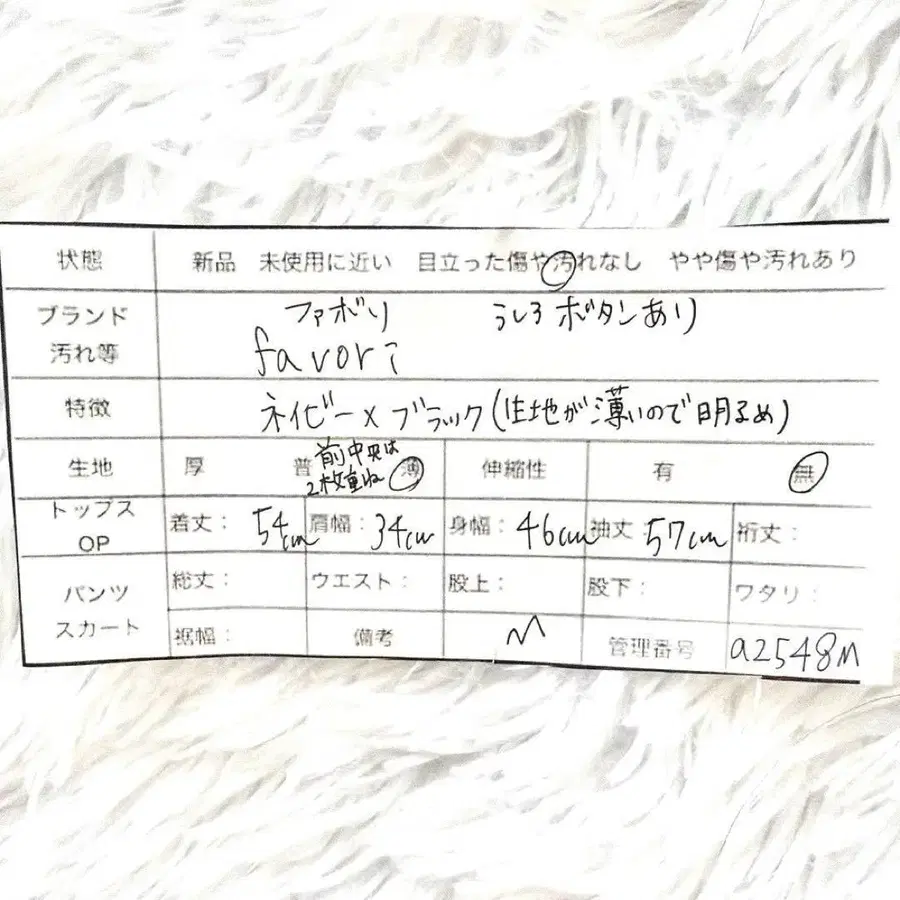 状態 新品 未使用に近い 目立った傷や汚れなし やや傷や汚れあり
ブランド ファボリ うしろボタンあり
汚れ等 favori
特徴 ネイビー×ブラック(生地が薄いので明るめ)
生地 厚 普 前中央は 2枚重ね 薄 伸縮性 有 無
トップス OP 着丈: 54cm 肩幅: 34cm 身幅: 46cm 袖丈 57cm 裄丈:
パンツ 総丈: ウエスト: 股上: 股下: ワタリ:
スカート 裾幅: 備考 M 管理番号 a2548M